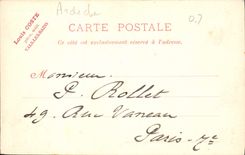 Ardèche
07
Louis COSTE
CARTE POSTALE
Ce côté est exclusivement réservé à l'adresse.
Monsieur
P. Rollet
49, Rue Vaneau
Paris-7e